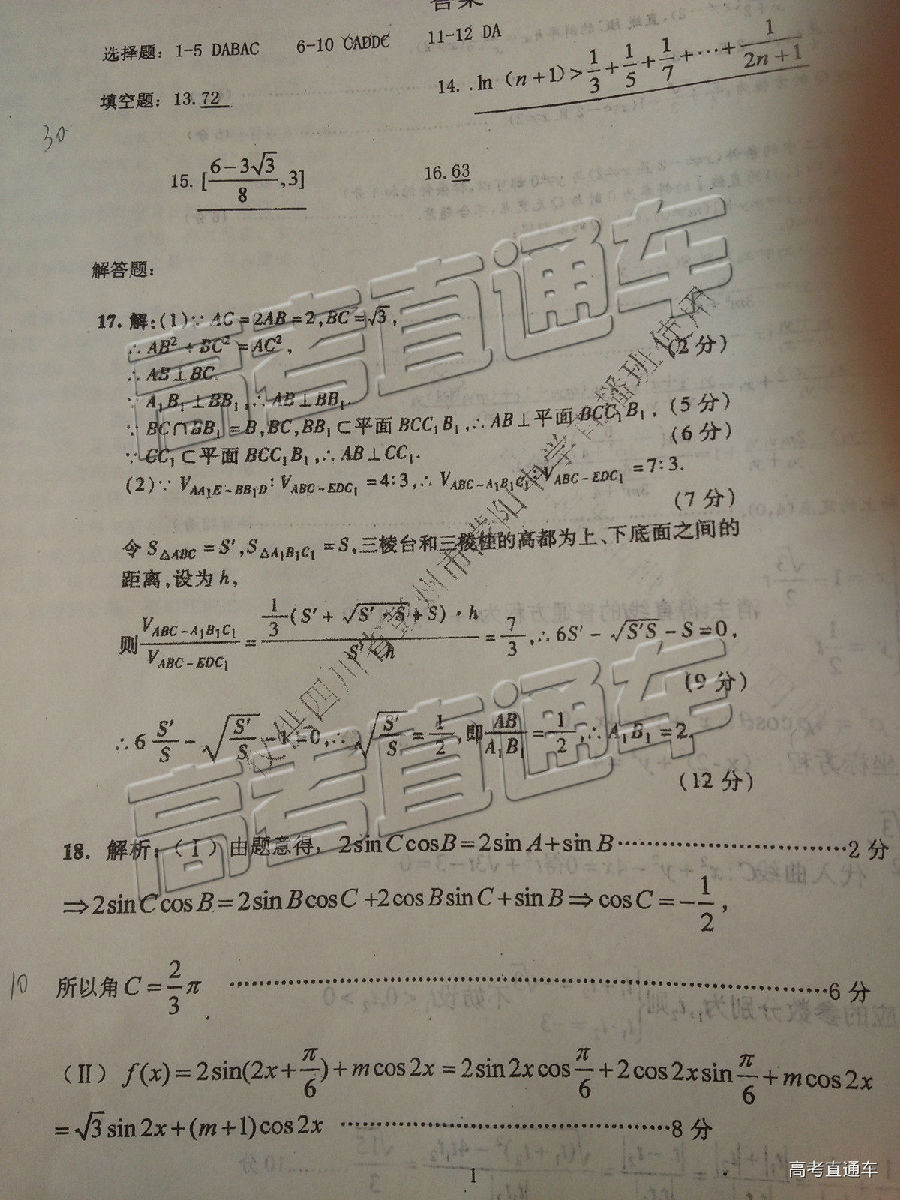 答案
选择题: 1-5 DABAC 6-10 CADDC 11-12 DA
填空题: 13.72 14. .ln (n+1)>1/3+1/5+1/7+⋯+1/(2n+1)
30
15. [(6-3√3)/8,3] 16.63
解答题:
17.解:(1)∵AC=2AB=2,BC=√3,
∴AB²+BC²=AC², (2分)
∴AB⊥BC.
∵A₁B₁⊥BB₁,∴AB⊥BB₁
∵BC∩BB₁=B,BC,BB₁⊂平面BCC₁B₁,∴AB⊥平面BCC₁B₁. (5分)
∵CC₁⊂平面BCC₁B₁,∴AB⊥CC₁. (6分)
(2)∵V_{AA₁E-BB₁D}:V_{ABC-EDC₁}=4:3,∴V_{ABC-A₁B₁C₁}:V_{ABC-EDC₁}=7:3.
(7分)
令S_{△ABC}=S′,S_{△A₁B₁C₁}=S,三棱台和三棱柱的高都为上、下底面之间的
距离,设为h,
则V_{ABC-A₁B₁C₁}/V_{ABC-EDC₁}=(1/3(S′+√(S′·S)+S)·h)/(S′·h)=7/3,∴6S′-√(S′S)-S=0,
(9分)
∴6 S′/S-√(S′/S)-1=0,∴√(S′/S)=1/2,即AB/A₁B₁=1/2,∴A₁B₁=2.
(12分)
18. 解析:(Ⅰ)由题意得, 2sinCcosB=2sinA+sinB⋯⋯⋯⋯⋯⋯⋯⋯2分
⇒2sinCcosB=2sinBcosC+2cosBsinC+sinB⇒cosC=-1/2,
10
所以角C=2/3π ⋯⋯⋯⋯⋯⋯⋯⋯⋯⋯⋯⋯⋯⋯⋯⋯6分
(Ⅱ) f(x)=2sin(2x+π/6)+mcos2x=2sin2xcosπ/6+2cos2xsinπ/6+mcos2x
=√3sin2x+(m+1)cos2x ⋯⋯⋯⋯⋯⋯⋯⋯⋯⋯8分
1
高考直通车
高考直通车
高考直通车